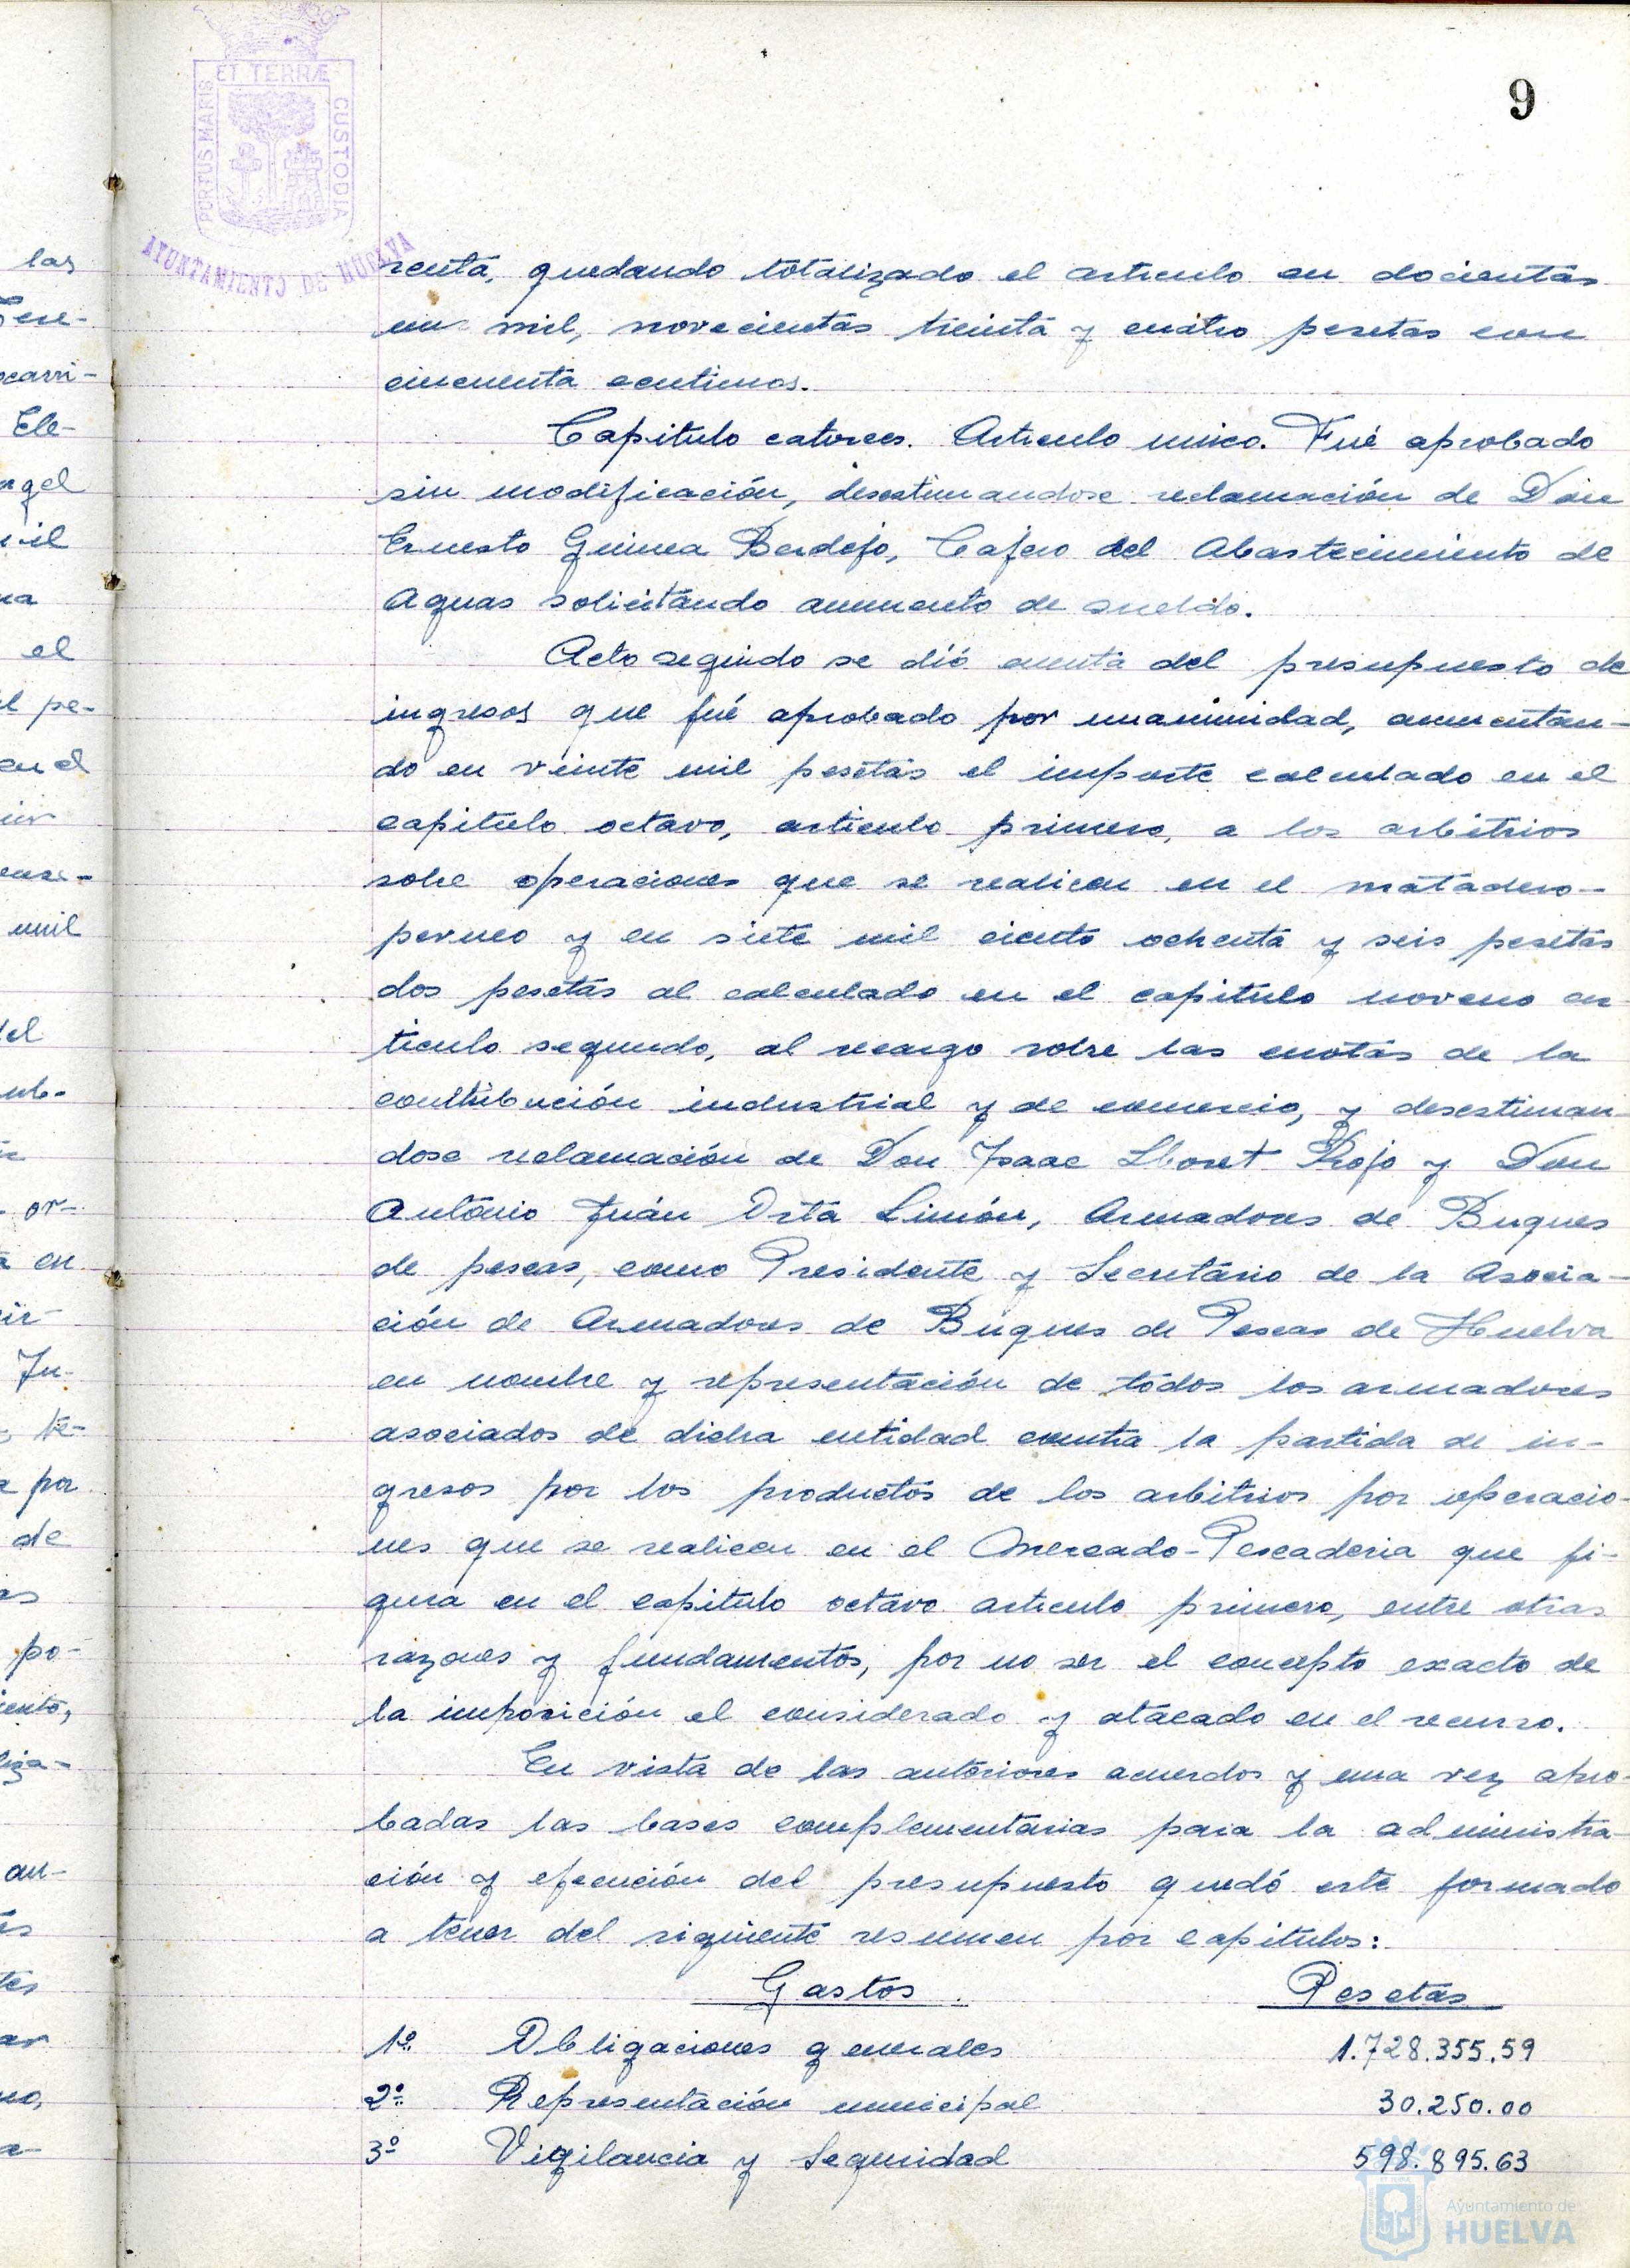 9
PORTUS MARIS ET TERRÆ CUSTODIA
AYUNTAMIENTO DE HUELVA
renta, quedando totalizado el articulo en docientas
un mil, novecientas treinta y cuatro pesetas con
cincuenta centimos.
Capitulo catorces. Articulo unico. Fué aprobado
sin modificación, desestimandose reclamación de Don
Ernesto Guinea Berdejo, Cajero del Abastecimiento de
Aguas solicitando aumento de sueldo.
Acto seguido se dió cuenta del presupuesto de
ingresos que fué aprobado por unanimidad, aumentan-
do en veinte mil pesetas el importe calculado en el
capitulo octavo, articulo primero, a los arbitrios
sobre operaciones que se realicen en el matadero-
perneo y en siete mil ciento ochenta y seis pesetas
dos pesetas al calculado en el capitulo noveno ar
ticulo segundo, al recargo sobre las cuotas de la
contribución industrial y de comercio, y desestiman
dose reclamación de Don Isaac Lloret Rojo y Don
Antonio Juán Orta Limón, Armadores de Buques
de pescas, como Presidente y Secretario de la Asocia-
ción de Armadores de Buques de Pescas de Huelva
en nombre y representación de todos los armadores
asociados de dicha entidad contra la partida de in-
gresos por los productos de los arbitrios por operacio-
nes que se realicen en el Mercado-Pescaderia que fi-
gura en el capitulo octavo articulo primero, entre otras
razones y fundamentos, por no ser el concepto exacto de
la imposición el considerado y atacado en el recurso.
En vista de las anteriores acuerdos y una vez apro-
badas las bases complementarias para la administra-
ción y ejecución del presupuesto quedó este formado
a tenor del siguiente resumen por capitulos:
Gastos. Pesetas
1º Obligaciones generales 1.728.355.59
2º Representación municipal 30.250.00
3º Vigilancia y Seguridad 598.895.63
Ayuntamiento de
HUELVA